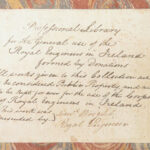 Professional Library
for the General use of the
Royal Engineers in Ireland
formed by Donations
All works given to this Collection are to
be considered Public Property, and are
to be kept for ever for the use of the Corps
of Royal Engineers in Ireland
This work was
presented by
Royal Engineers